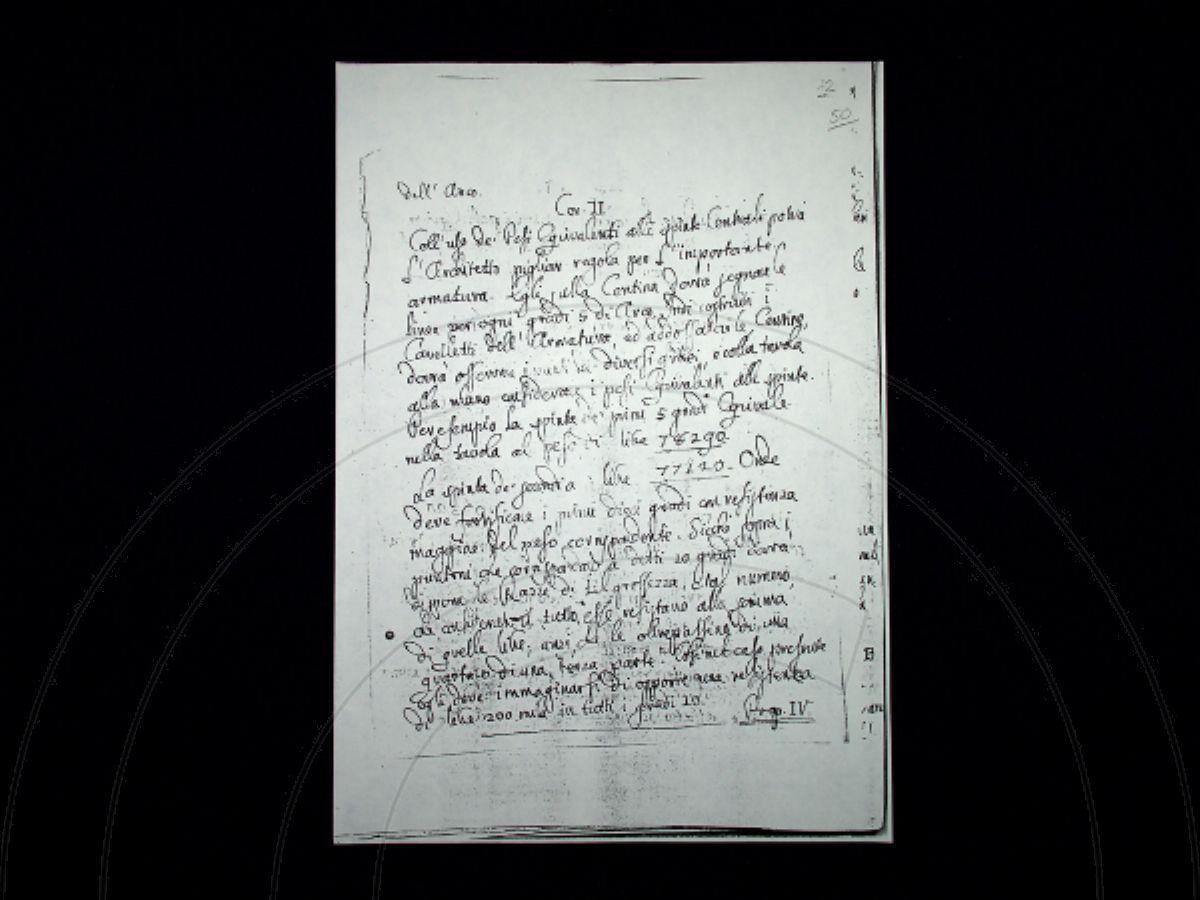 12
50
dell' Arco.
Cor. II.
Coll' uso de' Pesi Equivalenti alle spinte Centrali potrà
L'Architetto pigliar regola per l'importante
armatura. Egli sulla Centina dovrà segnare le
linee per ogni gradi 5 di Arco, nel costruir i
Cavalletti dell' Armatura, ed addossarvi le Centine,
dovrà osservare i diversi gradi, e colla tavola
alla mano considerare i pesi Equivalenti alle spinte.
Per esempio La spinta de' primi 5 gradi Equivale
nella tavola al peso di libre 78290.
La spinta de' secondi a libre 77120. Onde
deve fortificare i primi dieci gradi con resistenza
maggiore del peso corrispondente. Sicchè sopra i
puntoni che corrispondono a detti 10 gradi dovrà
di tal grossezza, e tal numero,
da tutto che resistano alla somma
di quelle libre, anzi che le oltrepassino di una
quarta o di una terza parte. Così nel caso presente
Egli deve immaginarsi di opporre una resistenza
di libre 200 mila in tutti i gradi 10.
Prop. IV